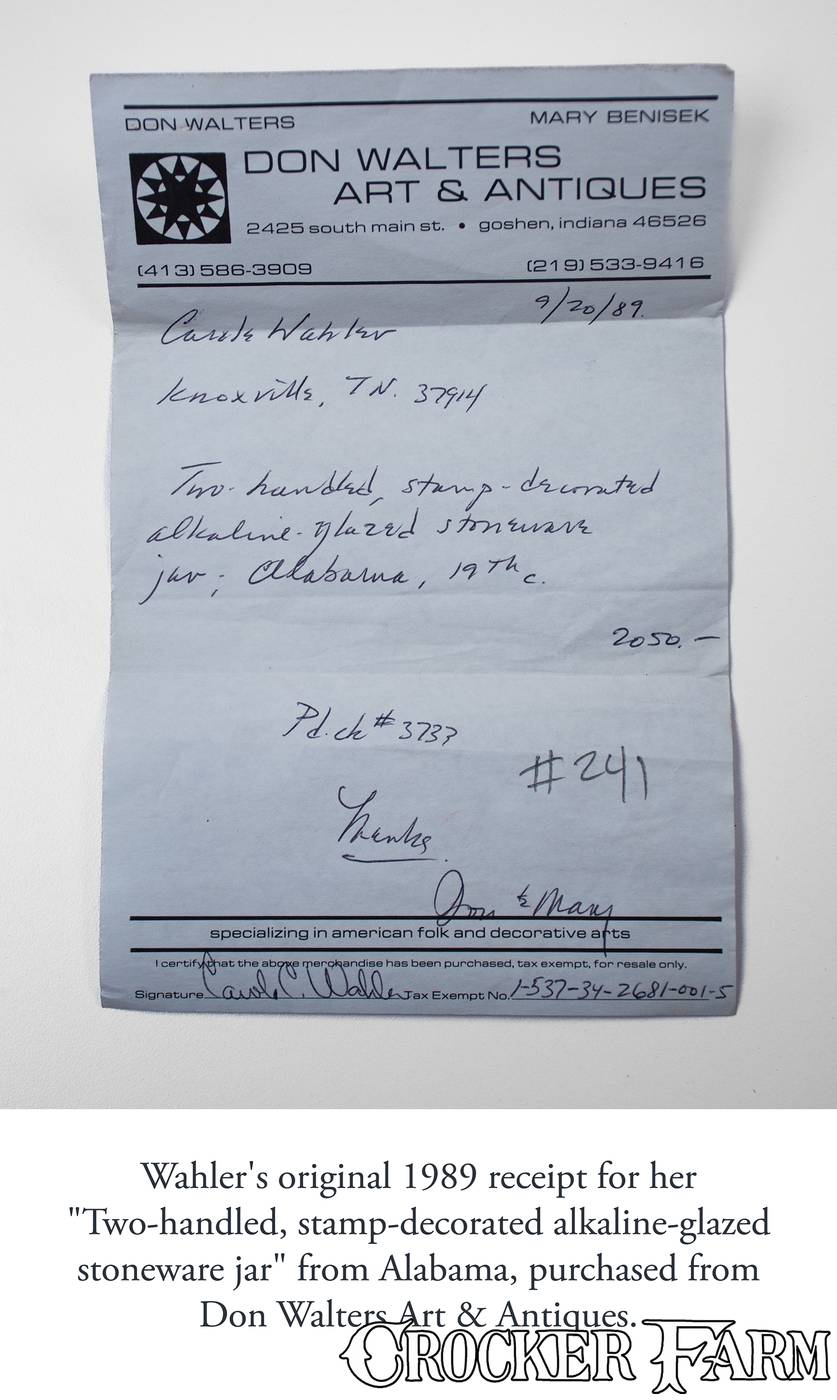 DON WALTERS
MARY BENISEK
DON WALTERS
ART & ANTIQUES
2425 south main st. • goshen, indiana 46526
(413) 586-3909
(219) 533-9416
9/20/89.
Carole Wahler
Knoxville, TN. 37914
Two-handled, stamp-decorated
alkaline-glazed stoneware
jar; Alabama, 19th c.
2050.—
Pd. ck # 3737
#241
Thanks
Don & Mary
specializing in american folk and decorative arts
I certify that the above merchandise has been purchased, tax exempt, for resale only.
Signature Carole C. Wahler Tax Exempt No. 1-537-34-2681-001-5
Wahler's original 1989 receipt for her
"Two-handled, stamp-decorated alkaline-glazed
stoneware jar" from Alabama, purchased from
Don Walters Art & Antiques.
CROCKER FARM